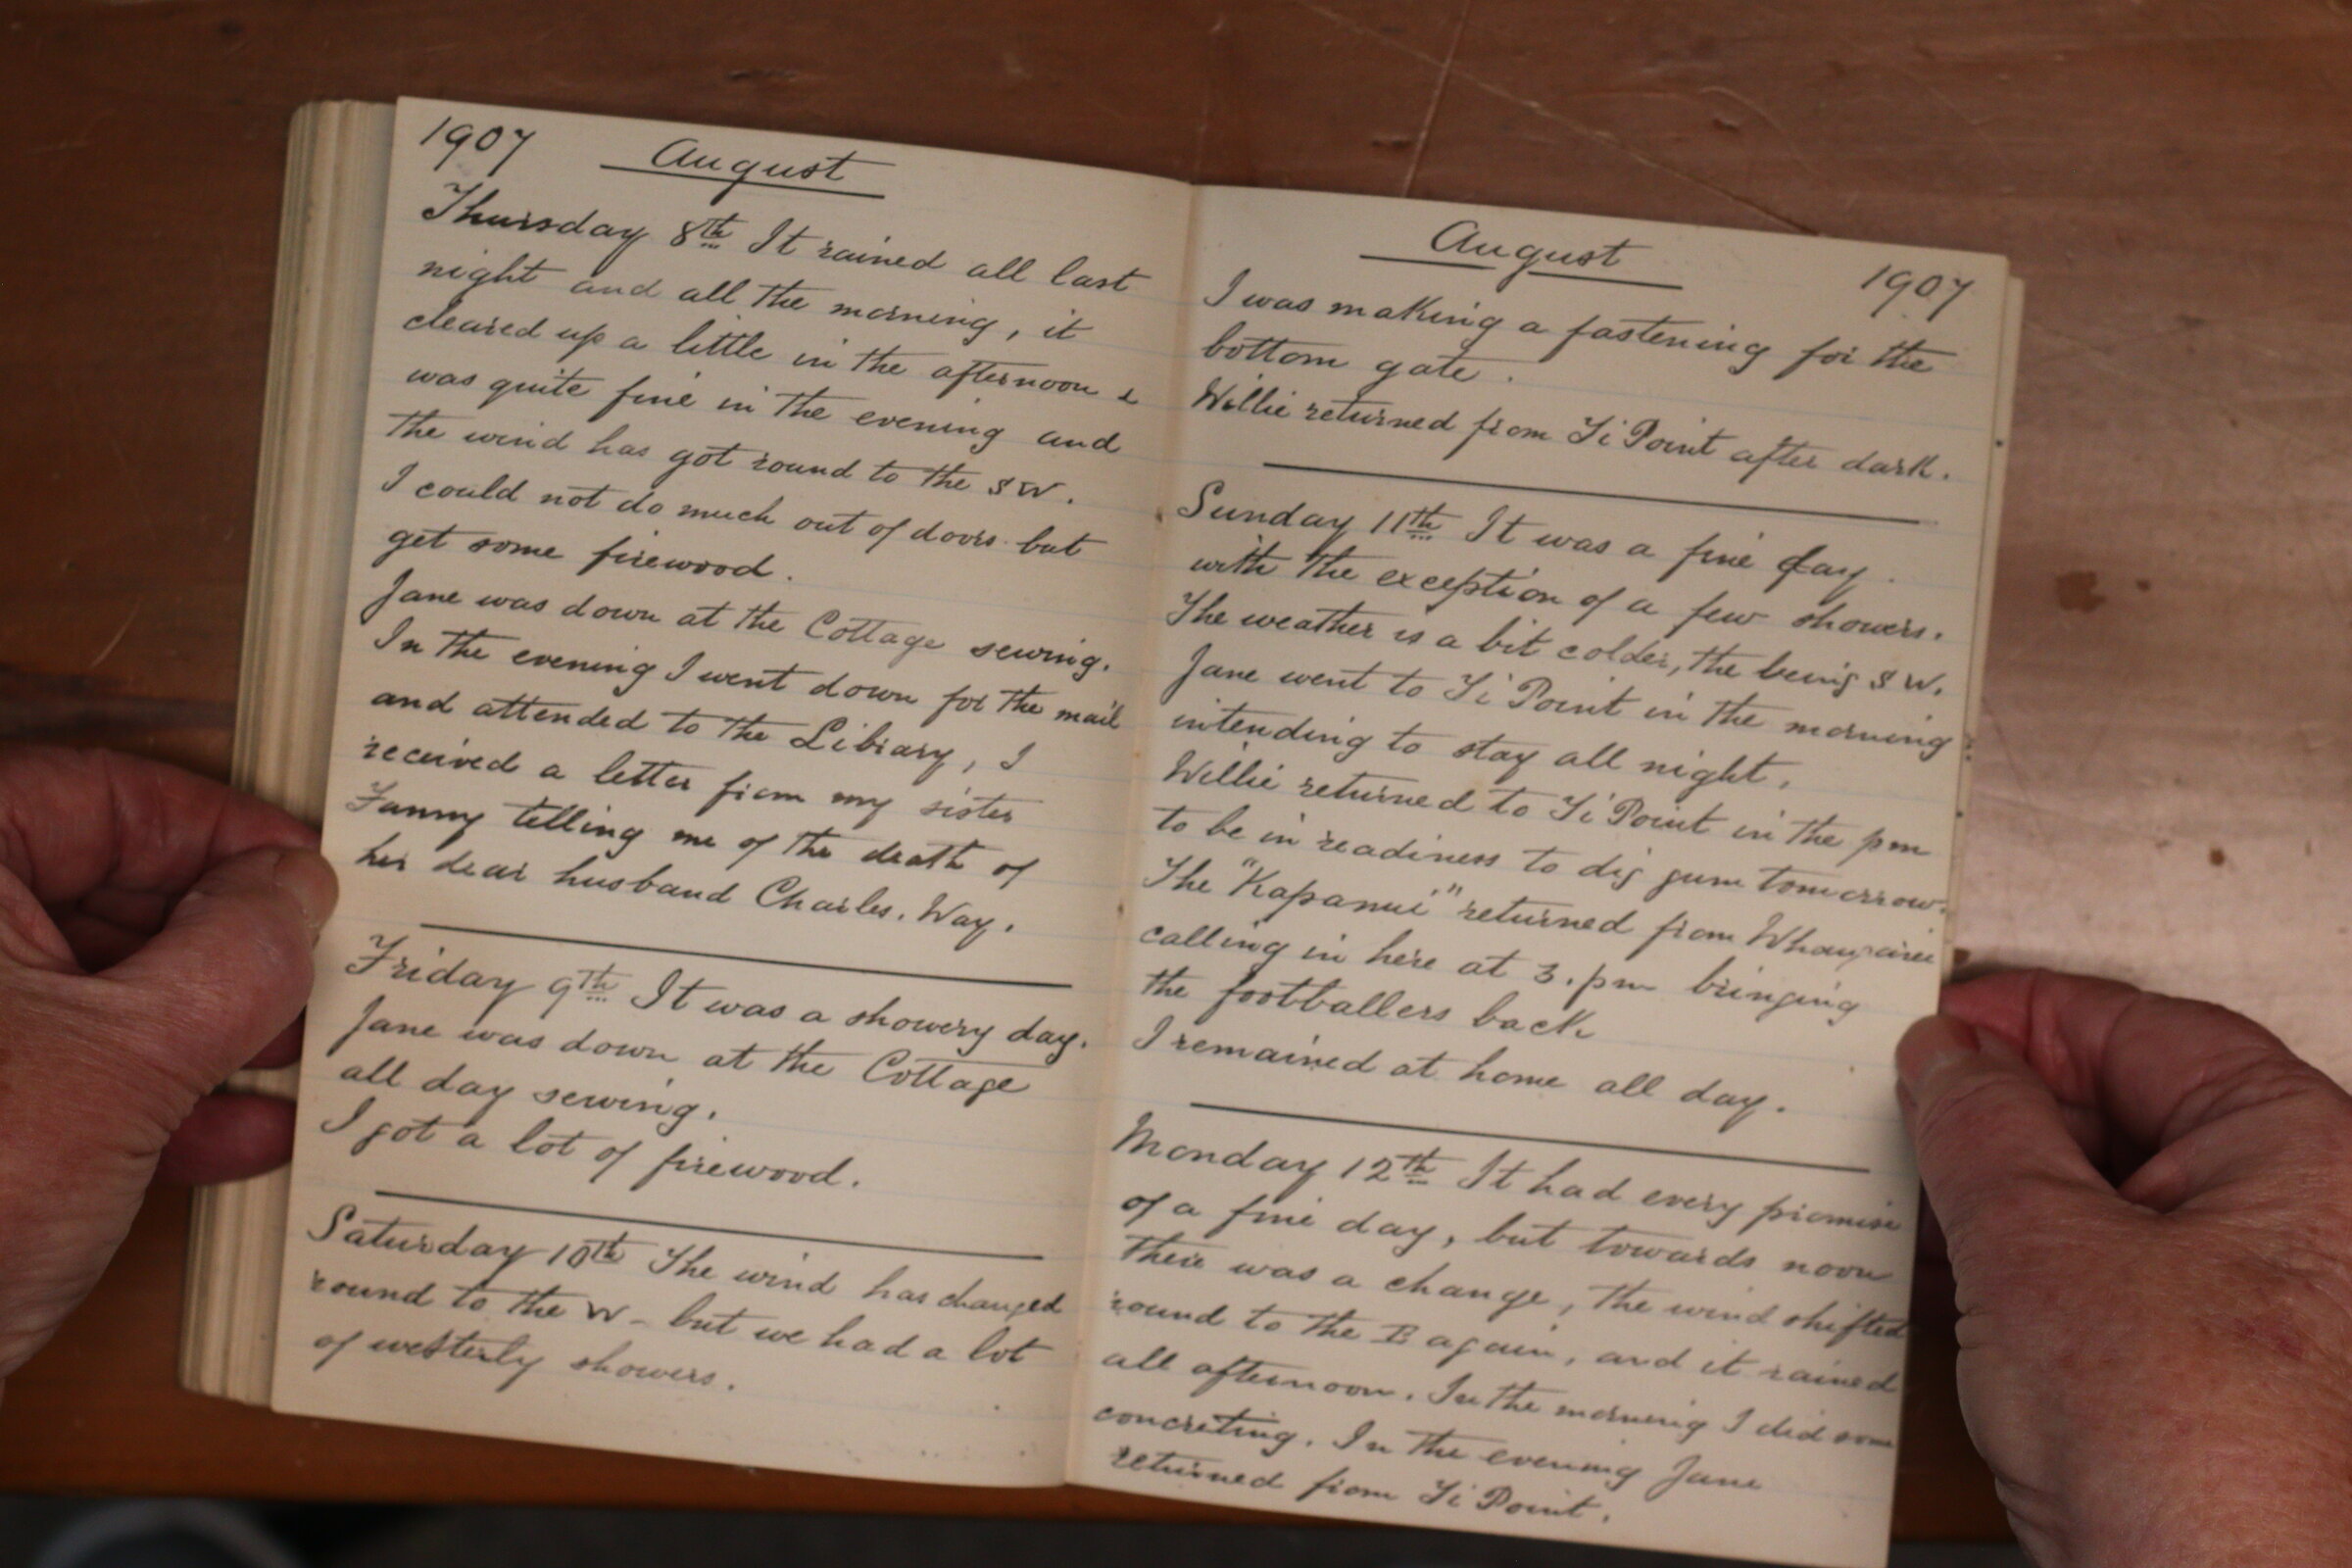 1907 August
Thursday 8th It rained all last
night and all the morning, it
cleared up a little in the afternoon &
was quite fine in the evening and
the wind has got round to the SW.
I could not do much out of doors but
get some firewood.
Jane was down at the Cottage sewing.
In the evening I went down for the mail
and attended to the Library, I
received a letter from my sister
Fanny telling me of the death of
her dear husband Charles. Way.
Friday 9th It was a showery day.
Jane was down at the Cottage
all day sewing.
I got a lot of firewood.
Saturday 10th The wind has changed
round to the W - but we had a lot
of westerly showers.
August 1907
I was making a fastening for the
bottom gate.
Willie returned from Ti Point after dark.
Sunday 11th It was a fine day.
with the exception of a few showers.
The weather is a bit colder, the being SW.
Jane went to Ti Point in the morning
intending to stay all night.
Willie returned to Ti Point in the pm
to be in readiness to dig gum tomorrow.
The "Kapanui" returned from Whangarei
calling in here at 3. pm bringing
the footballers back
I remained at home all day.
Monday 12th It had every promise
of a fine day, but towards noon
there was a change, the wind shifted
round to the E again, and it rained
all afternoon. In the morning I did some
concreting. In the evening Jane
returned from Ti Point.